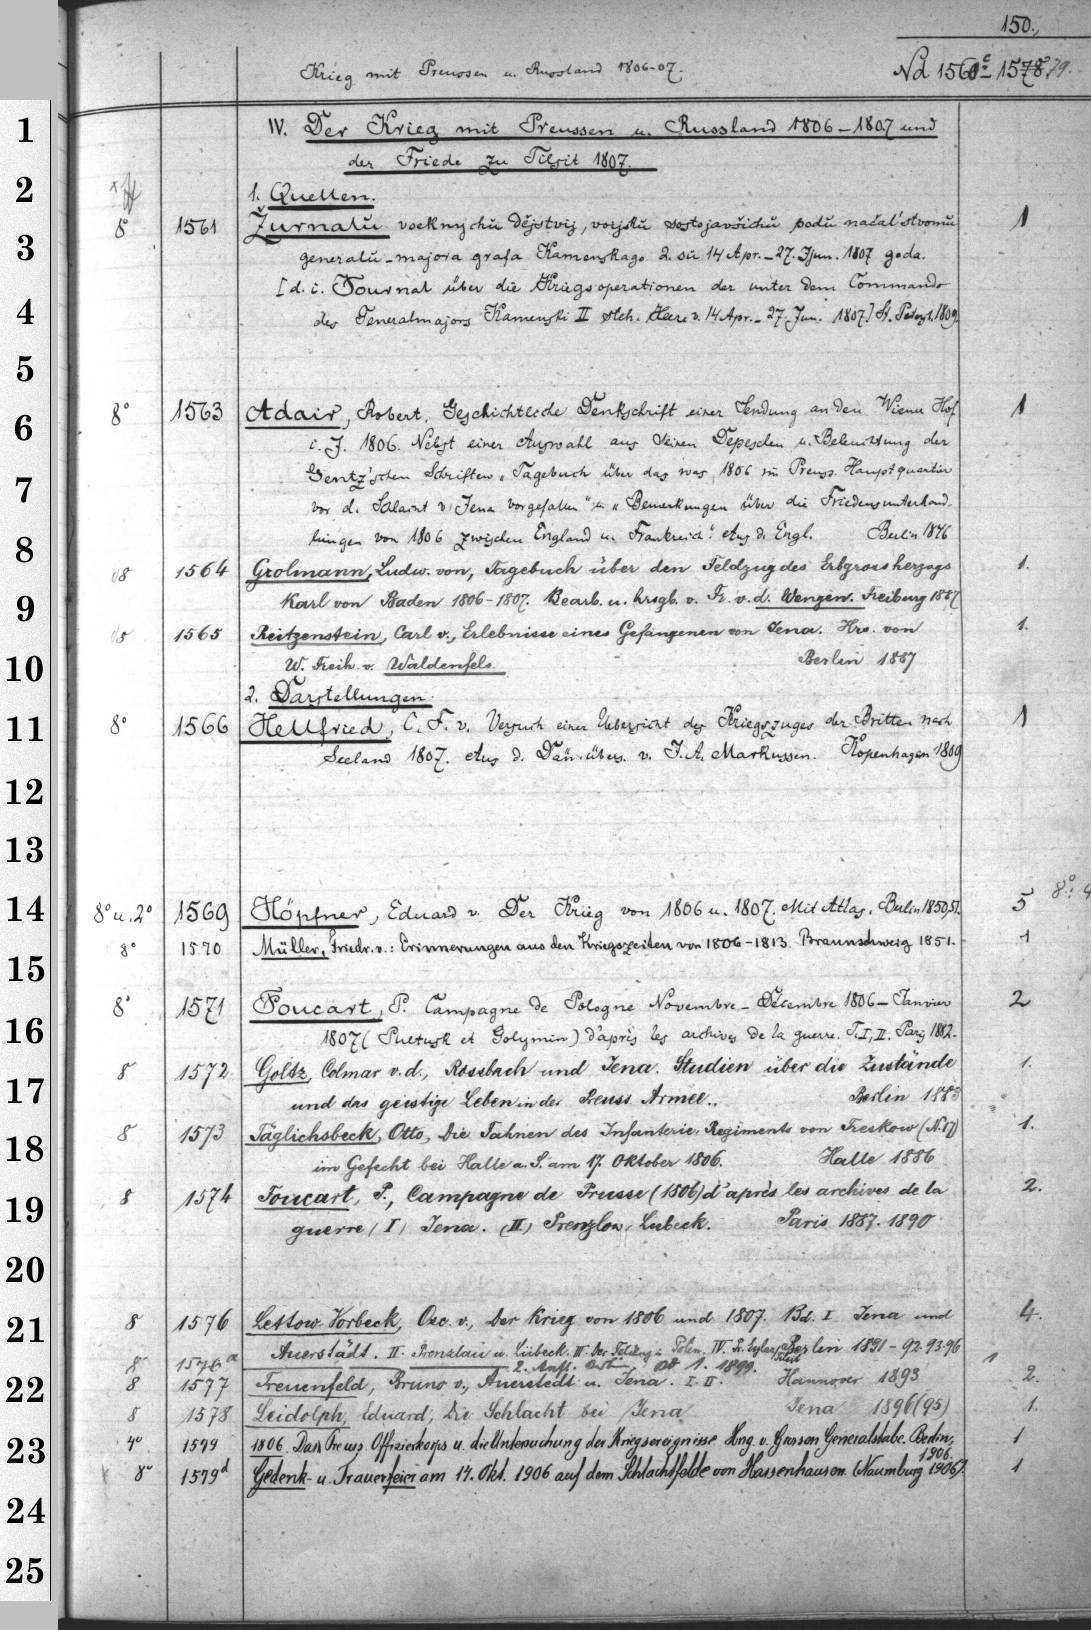 150.
Krieg mit Preussen u. Russland 1806-07.
Nd 1560c- 1578 79.
1
IV. Der Krieg mit Preussen u. Russland 1806-1807 und
der Friede zu Tilsit 1807.
2
1. Quellen.
8° 1561 Žurnalŭ voennychŭ dějstvij, vojskŭ sostojavšichŭ podŭ načal'stvomŭ 1
3
generalŭ-majora grafa Kamenskago 2. sŭ 14 Apr.-27. Ijun. 1807 goda.
[d. i. Journal über die Kriegsoperationen der unter dem Commando
4
des Generalmajors Kamenski II steh. Heere v. 14 Apr.-27. Jun. 1807.] St. Petersb. 1809.
5
8° 1563 Adair, Robert, Geschichtliche Denkschrift einer Sendung an den Wiener Hof 1
6
i. J. 1806. Nebst einer Auswahl aus seinen Depeschen u. Beleuchtung der
Gentz'schen Schriften „Tagebuch über das was 1806 im Preuss. Hauptquartier
7
vor d. Schlacht v. Jena vorgefallen" u. „Bemerkungen über die Friedensunterhand
lungen von 1806 zwischen England u. Frankreich." Aus d. Engl. Berlin 1846
8
8 1564 Grolmann, Ludw. von, Tagebuch über den Feldzug des Erbgrossherzogs 1.
9
Karl von Baden 1806-1807. Bearb. u. hrsgb. v. Fr. v. d. Wengen. Freiburg 1887
1565 Reitzenstein, Carl v., Erlebnisse eines Gefangenen von Jena. Hrs. von 1.
10
W. Freih. v. Waldenfels. Berlin 1887
2. Darstellungen.
11
8° 1566 Hellfried, C. F. v. Versuch einer Uebersicht des Kriegszuges der Britten nach 1
Seeland 1807. Aus d. Dän. übers. v. J. A. Markussen. Kopenhagen 1809
12
13
14
8° u. 2° 1569 Höpfner, Eduard v. Der Krieg von 1806 u. 1807. Mit Atlas. Berlin 1850,51. 5 8°: 4
8° 1570 Müller, Friedr. v.: Erinnerungen aus den Kriegszeiten von 1806-1813. Braunschweig 1851. 1
15
8° 1571 Foucart, P. Campagne de Pologne Novembre-Décembre 1806-Janvier 2
16
1807 (Pultusk et Golymin) d'après les archives de la guerre. T. I, II. Paris 1882.
8° 1572 Goltz, Colmar v. d., Rossbach und Jena. Studien über die Zustände 1.
17
und das geistige Leben in der Preuss. Armee. Berlin 1883
8° 1573 Täglichsbeck, Otto, Die Fahnen des Infanterie-Regiments von Treskow (N. 17) 1.
18
im Gefecht bei Halle a. S. am 17. Oktober 1806. Halle 1886
8 1574 Foucart, P., Campagne de Prusse (1806) d'après les archives de la 2.
19
guerre (I) Jena. (II) Prenzlow, Lubeck. Paris 1887. 1890
20
21
8 1576 Lettow-Vorbeck, Osc. v., Der Krieg von 1806 und 1807. Bd. I Jena und 4.
Auerstädt. II. Prenzlau u. Lübeck. III. Der Feldzug i. Polen. IV. Pr. Eylau, Tilsit Berlin 1891-92.93.96
8 1576a 2. Aufl. Berlin, Bd 1. 1899. 1
22
8 1577 Treuenfeld, Bruno v., Auerstedt u. Jena. I. II. Hannover 1893 2.
8 1578 Leidolph, Eduard, Die Schlacht bei Jena Jena 1896 (95) 1.
23
4° 1579 1806. Das Preuss. Offizierkorps u. die Untersuchung der Kriegsereignisse Hrsg. v. Grossen Generalstabe. Berlin, 1906. 1
8° 1579d Gedenk- u. Trauerfeier am 14. Okt. 1906 auf dem Schlachtfelde von Hassenhausen (Naumburg 1906). 1
24
25